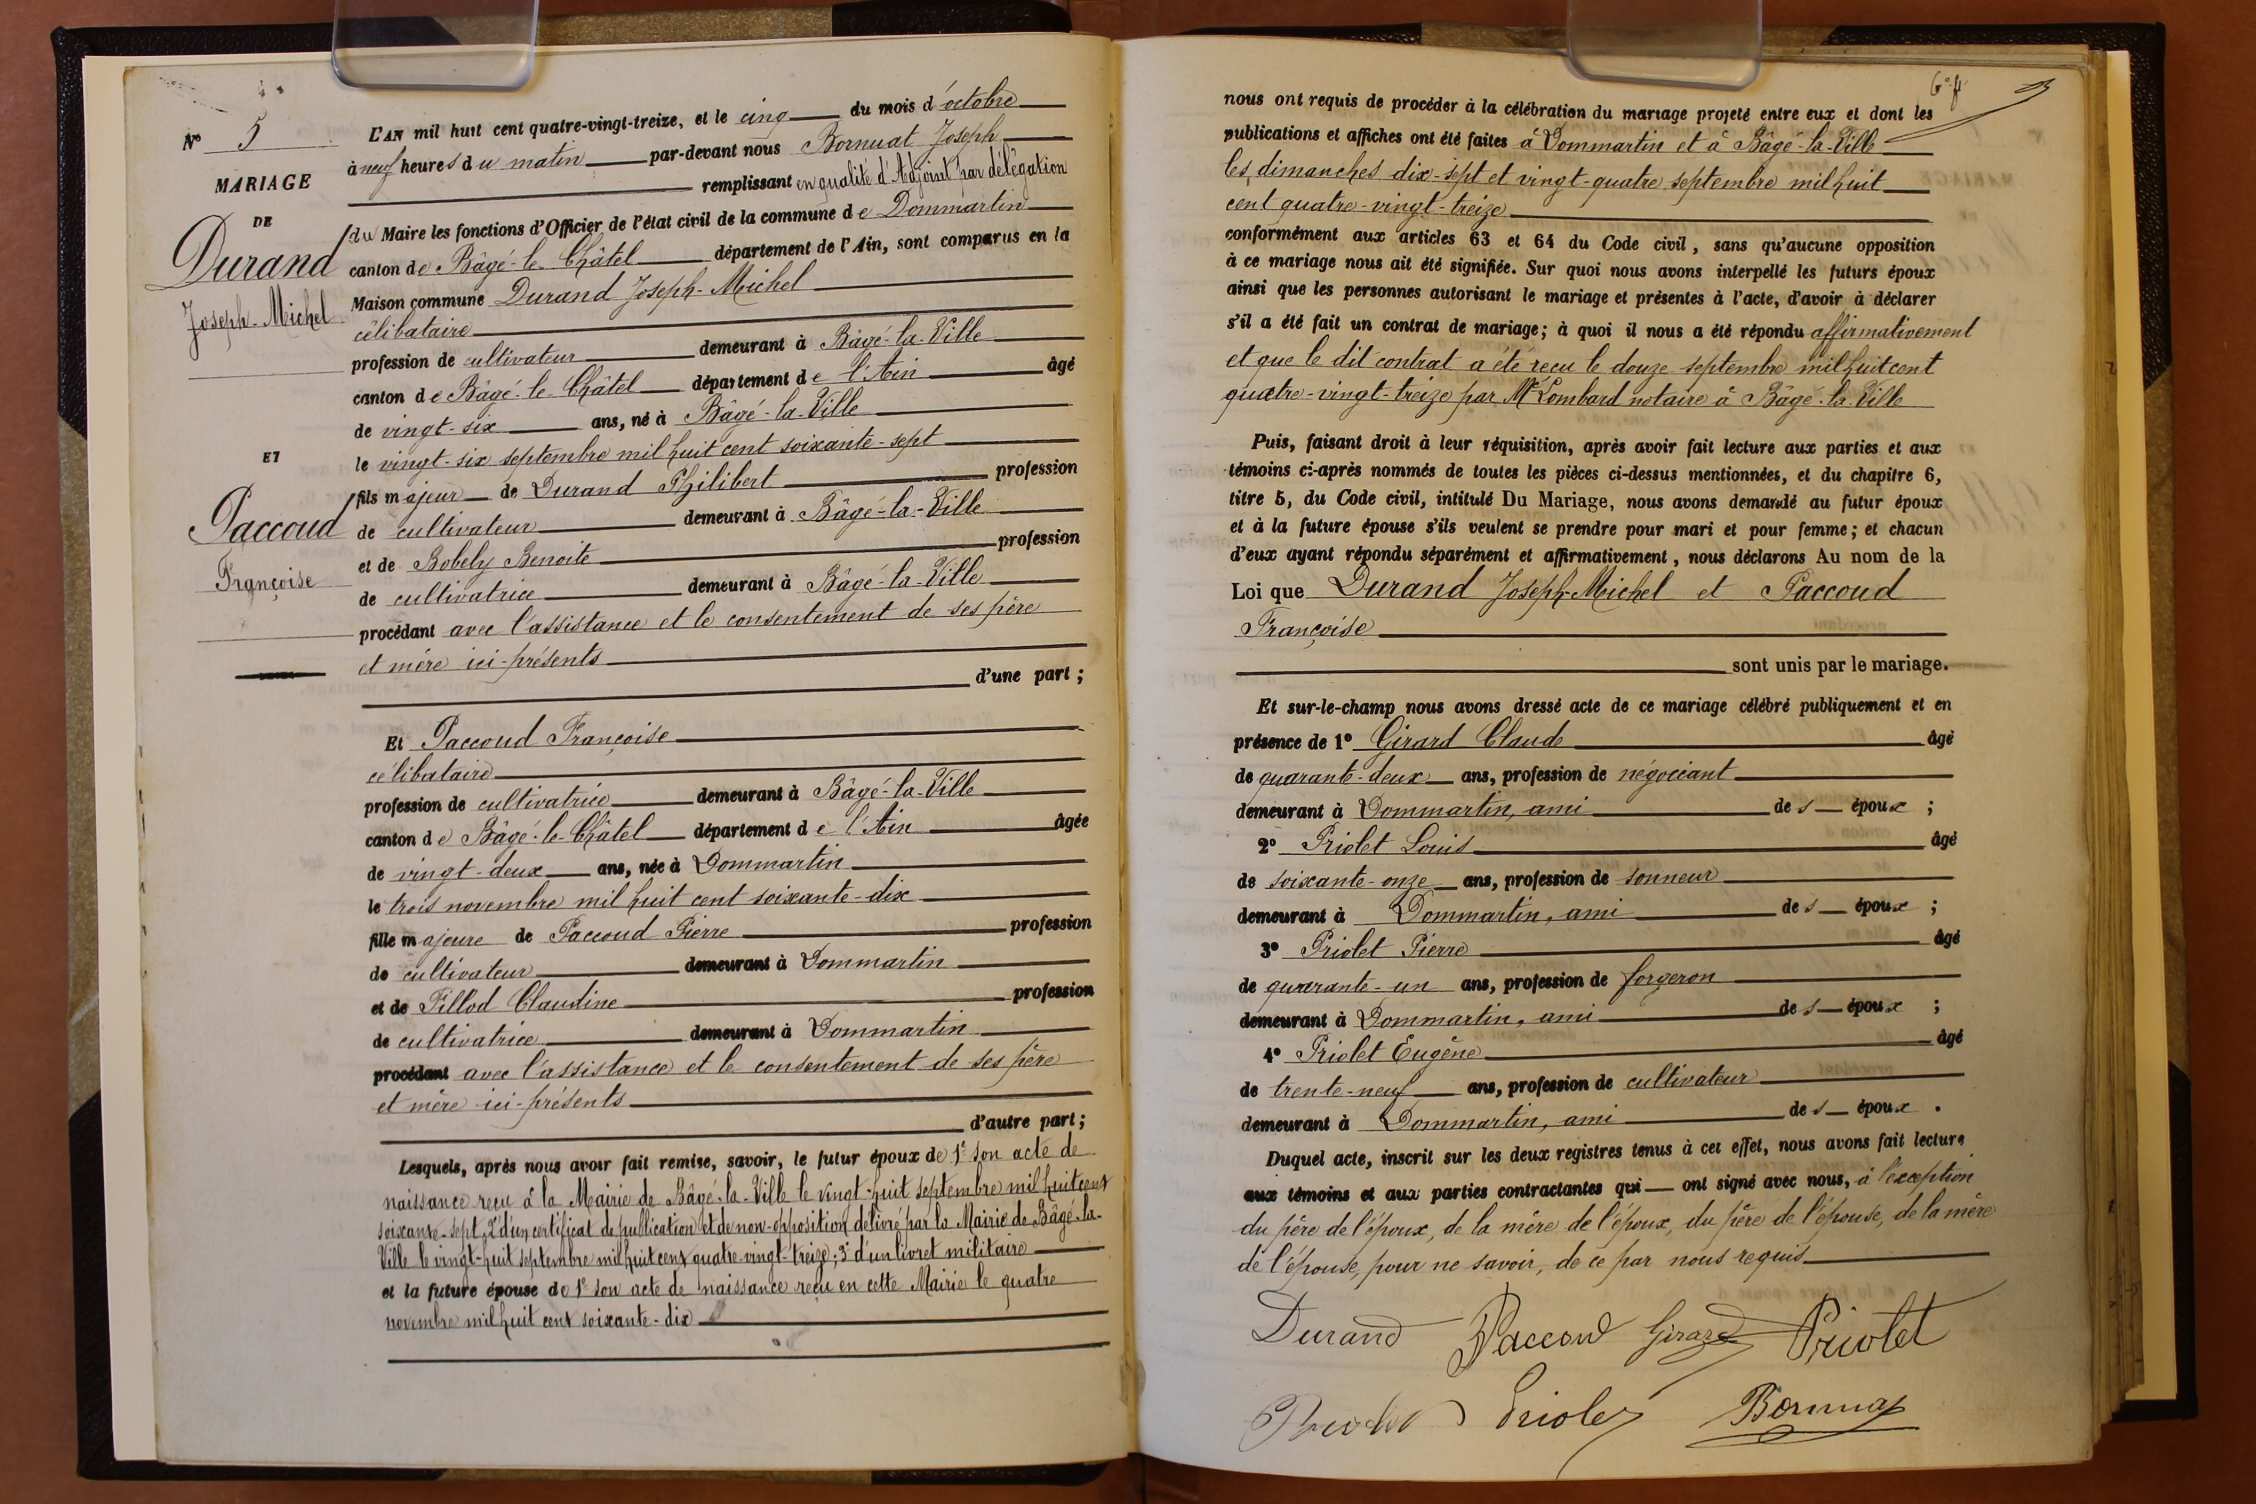 N° 5
MARIAGE
DE
Durand
Joseph-Michel
ET
Paccoud
Françoise
L'AN mil huit cent quatre-vingt-treize, et le cinq du mois d'octobre
à neuf heures du matin par-devant nous Bornuat Joseph
remplissant en qualité d'Adjoint par délégation
du Maire les fonctions d'Officier de l'état civil de la commune de Dommartin
canton de Bâgé-le-Châtel département de l'Ain, sont comparus en la
Maison commune Durand Joseph-Michel
célibataire
profession de cultivateur demeurant à Bâgé-la-Ville
canton de Bâgé-le-Châtel département de l'Ain âgé
de vingt-six ans, né à Bâgé-la-Ville
le vingt-six septembre mil huit cent soixante-sept
fils majeur de Durand Philibert profession
de cultivateur demeurant à Bâgé-la-Ville
et de Bobely Benoite profession
de cultivatrice demeurant à Bâgé-la-Ville
procédant avec l'assistance et le consentement de ses père
et mère ici-présents
d'une part ;
Et Paccoud Françoise
célibataire
profession de cultivatrice demeurant à Bâgé-la-Ville
canton de Bâgé-le-Châtel département de l'Ain âgée
de vingt-deux ans, née à Dommartin
le trois novembre mil huit cent soixante-dix
fille majeure de Paccoud Pierre profession
de cultivateur demeurant à Dommartin
et de Fillod Claudine profession
de cultivatrice demeurant à Dommartin
procédant avec l'assistance et le consentement de ses père
et mère ici-présents
d'autre part ;
Lesquels, après nous avoir fait remise, savoir, le futur époux de 1° son acte de
naissance reçu à la Mairie de Bâgé-la-Ville le vingt-huit septembre mil huit cent
soixante-sept, 2° d'un certificat de publication et de non-opposition délivré par la Mairie de Bâgé-la-
Ville le vingt-huit septembre mil huit cent quatre-vingt-treize ; 3° d'un livret militaire
et la future épouse de 1° son acte de naissance reçu en cette Mairie le quatre
novembre mil huit cent soixante-dix
6e f
nous ont requis de procéder à la célébration du mariage projeté entre eux et dont les
publications et affiches ont été faites à Dommartin et à Bâgé-la-Ville
les dimanches dix-sept et vingt-quatre septembre mil huit
cent quatre-vingt-treize
conformément aux articles 63 et 64 du Code civil, sans qu'aucune opposition
à ce mariage nous ait été signifiée. Sur quoi nous avons interpellé les futurs époux
ainsi que les personnes autorisant le mariage et présentes à l'acte, d'avoir à déclarer
s'il a été fait un contrat de mariage ; à quoi il nous a été répondu affirmativement
et que le dit contrat a été reçu le douze septembre mil huit cent
quatre-vingt-treize par Me Lombard notaire à Bâgé-la-Ville
Puis, faisant droit à leur réquisition, après avoir fait lecture aux parties et aux
témoins ci-après nommés de toutes les pièces ci-dessus mentionnées, et du chapitre 6,
titre 5, du Code civil, intitulé Du Mariage, nous avons demandé au futur époux
et à la future épouse s'ils veulent se prendre pour mari et pour femme ; et chacun
d'eux ayant répondu séparément et affirmativement, nous déclarons Au nom de la
Loi que Durand Joseph-Michel et Paccoud
Françoise
sont unis par le mariage.
Et sur-le-champ nous avons dressé acte de ce mariage célébré publiquement et en
présence de 1° Girard Claude âgé
de quarante-deux ans, profession de négociant
demeurant à Dommartin, ami des époux ;
2° Priolet Louis âgé
de soixante-onze ans, profession de sonneur
demeurant à Dommartin, ami des époux ;
3° Priolet Pierre âgé
de quarante-un ans, profession de forgeron
demeurant à Dommartin, ami des époux ;
4° Priolet Eugène âgé
de trente-neuf ans, profession de cultivateur
demeurant à Dommartin, ami des époux .
Duquel acte, inscrit sur les deux registres tenus à cet effet, nous avons fait lecture
aux témoins et aux parties contractantes qui ont signé avec nous, à l'exception
du père de l'époux, de la mère de l'époux, du père de l'épouse, de la mère
de l'épouse, pour ne savoir, de ce par nous requis
Durand Paccoud Girard Priolet
Priolet Bornuat